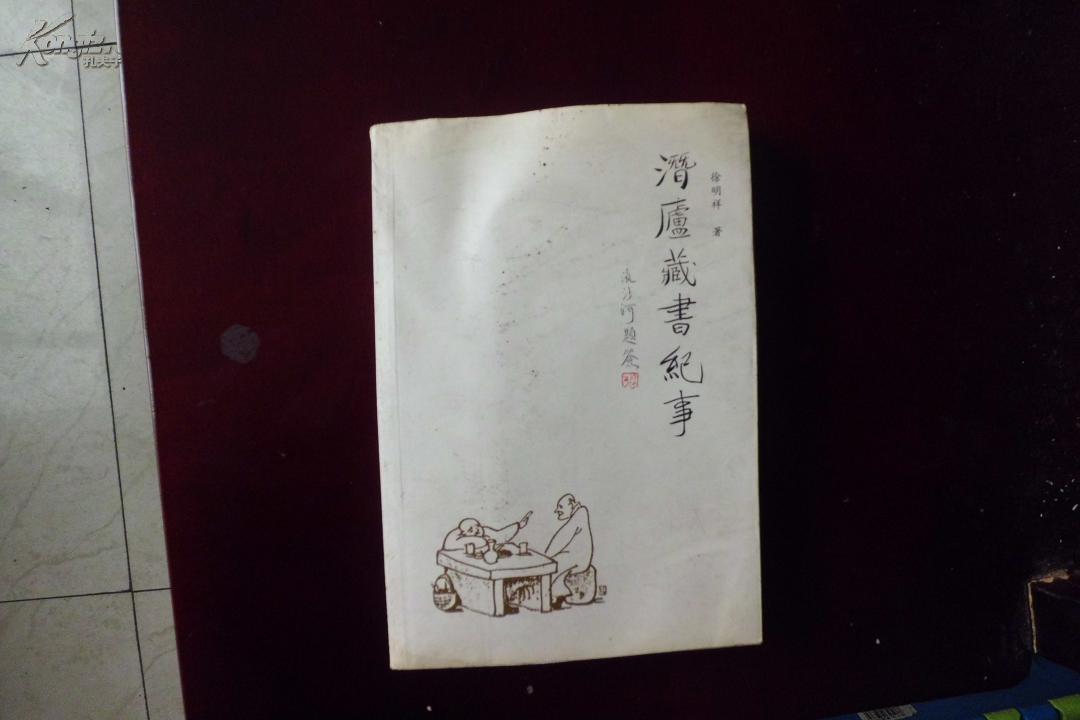 徐明祥 著
潛廬藏書紀事
流沙河題簽
Kongfz
孔夫子